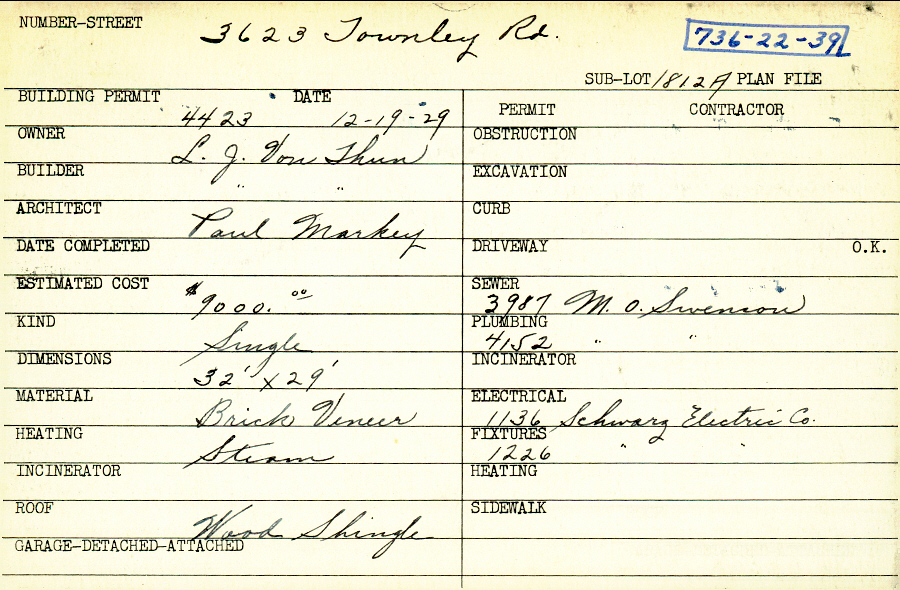 NUMBER-STREET 3623 Townley Rd. 736-22-39
SUB-LOT 1812A PLAN FILE
BUILDING PERMIT DATE
4423 12-19-29
PERMIT CONTRACTOR
OWNER L. J. Von Thun
OBSTRUCTION
BUILDER " "
EXCAVATION
ARCHITECT Paul Markey
CURB
DATE COMPLETED
DRIVEWAY O.K.
ESTIMATED COST $9000.00
SEWER
3987 M. O. Swenson
KIND Single
PLUMBING
4152 " "
DIMENSIONS 32' x 29'
INCINERATOR
MATERIAL Brick Veneer
ELECTRICAL
1136 Schwarz Electric Co.
HEATING Steam
FIXTURES
1226 " "
INCINERATOR
HEATING
ROOF Wood Shingle
SIDEWALK
GARAGE-DETACHED-ATTACHED